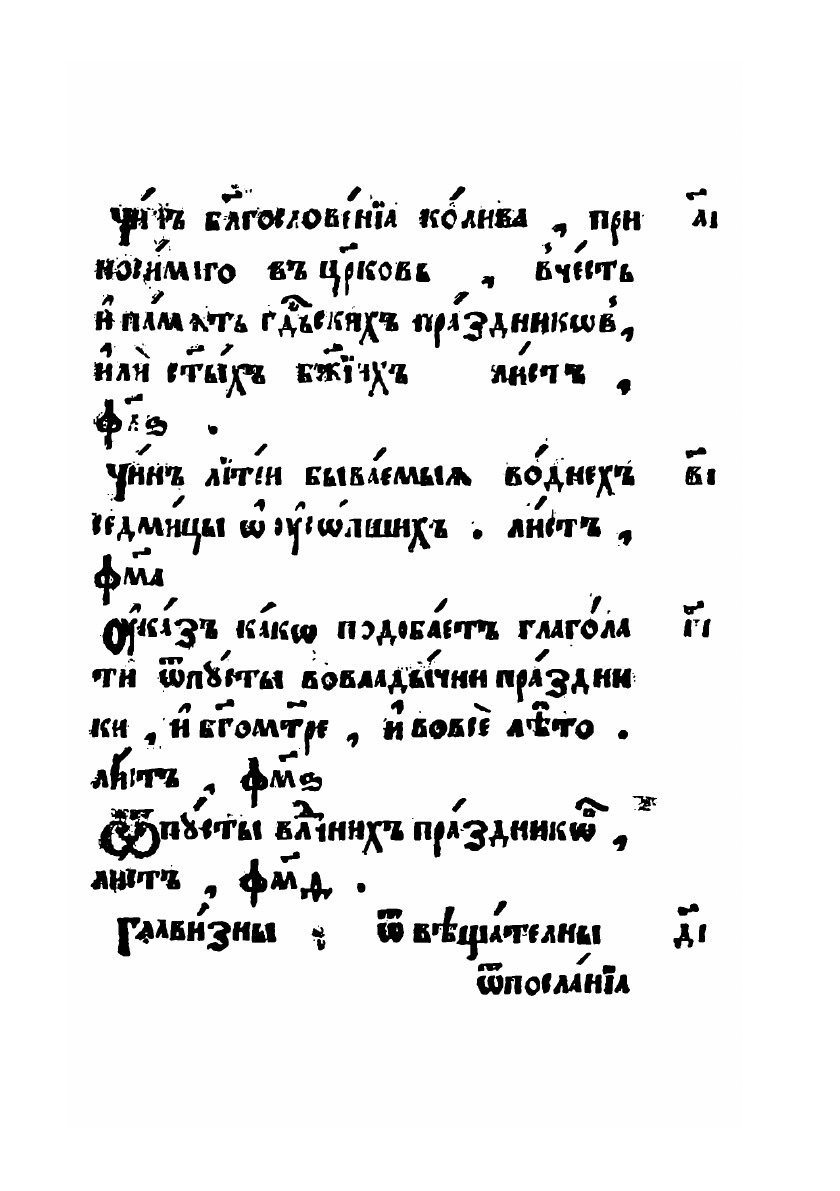 Чи́нъ бл҃гословє́нїѧ ко́лива , при а҃і
носи́маго въ цр҃ковь , в̾че́сть
и҆ па́мѧть гдⷭ҇ьскихъ пра́здникѡвъ,
и҆лѝ ст҃ы́хъ бж҃їихъ ли́стъ ,
ф҃лѕ .
Чи́нъ лїтїи́ быва́емыѧ во́днехъ в҃і
седми́цы ѡ҆ ᲂу҆со́пшихъ . ли́стъ ,
ф҃ма
Оу҆ка́зъ ка́кѡ подоба́етъ глаго́ла г҃і
ти ѿпꙋ́сты вовлады́чни пра́здни
ки , и҆ бг҃омт҃ре , и҆ вовсѐ лѣ́то .
ли́стъ , ф҃мѕ
Ѿпꙋ́сты влⷣчнихъ пра́здникѡвъ ,
ли́стъ , ф҃мд .
Глави́зны : ѿвѣща́телны д҃і
ѿпосла́нїѧ